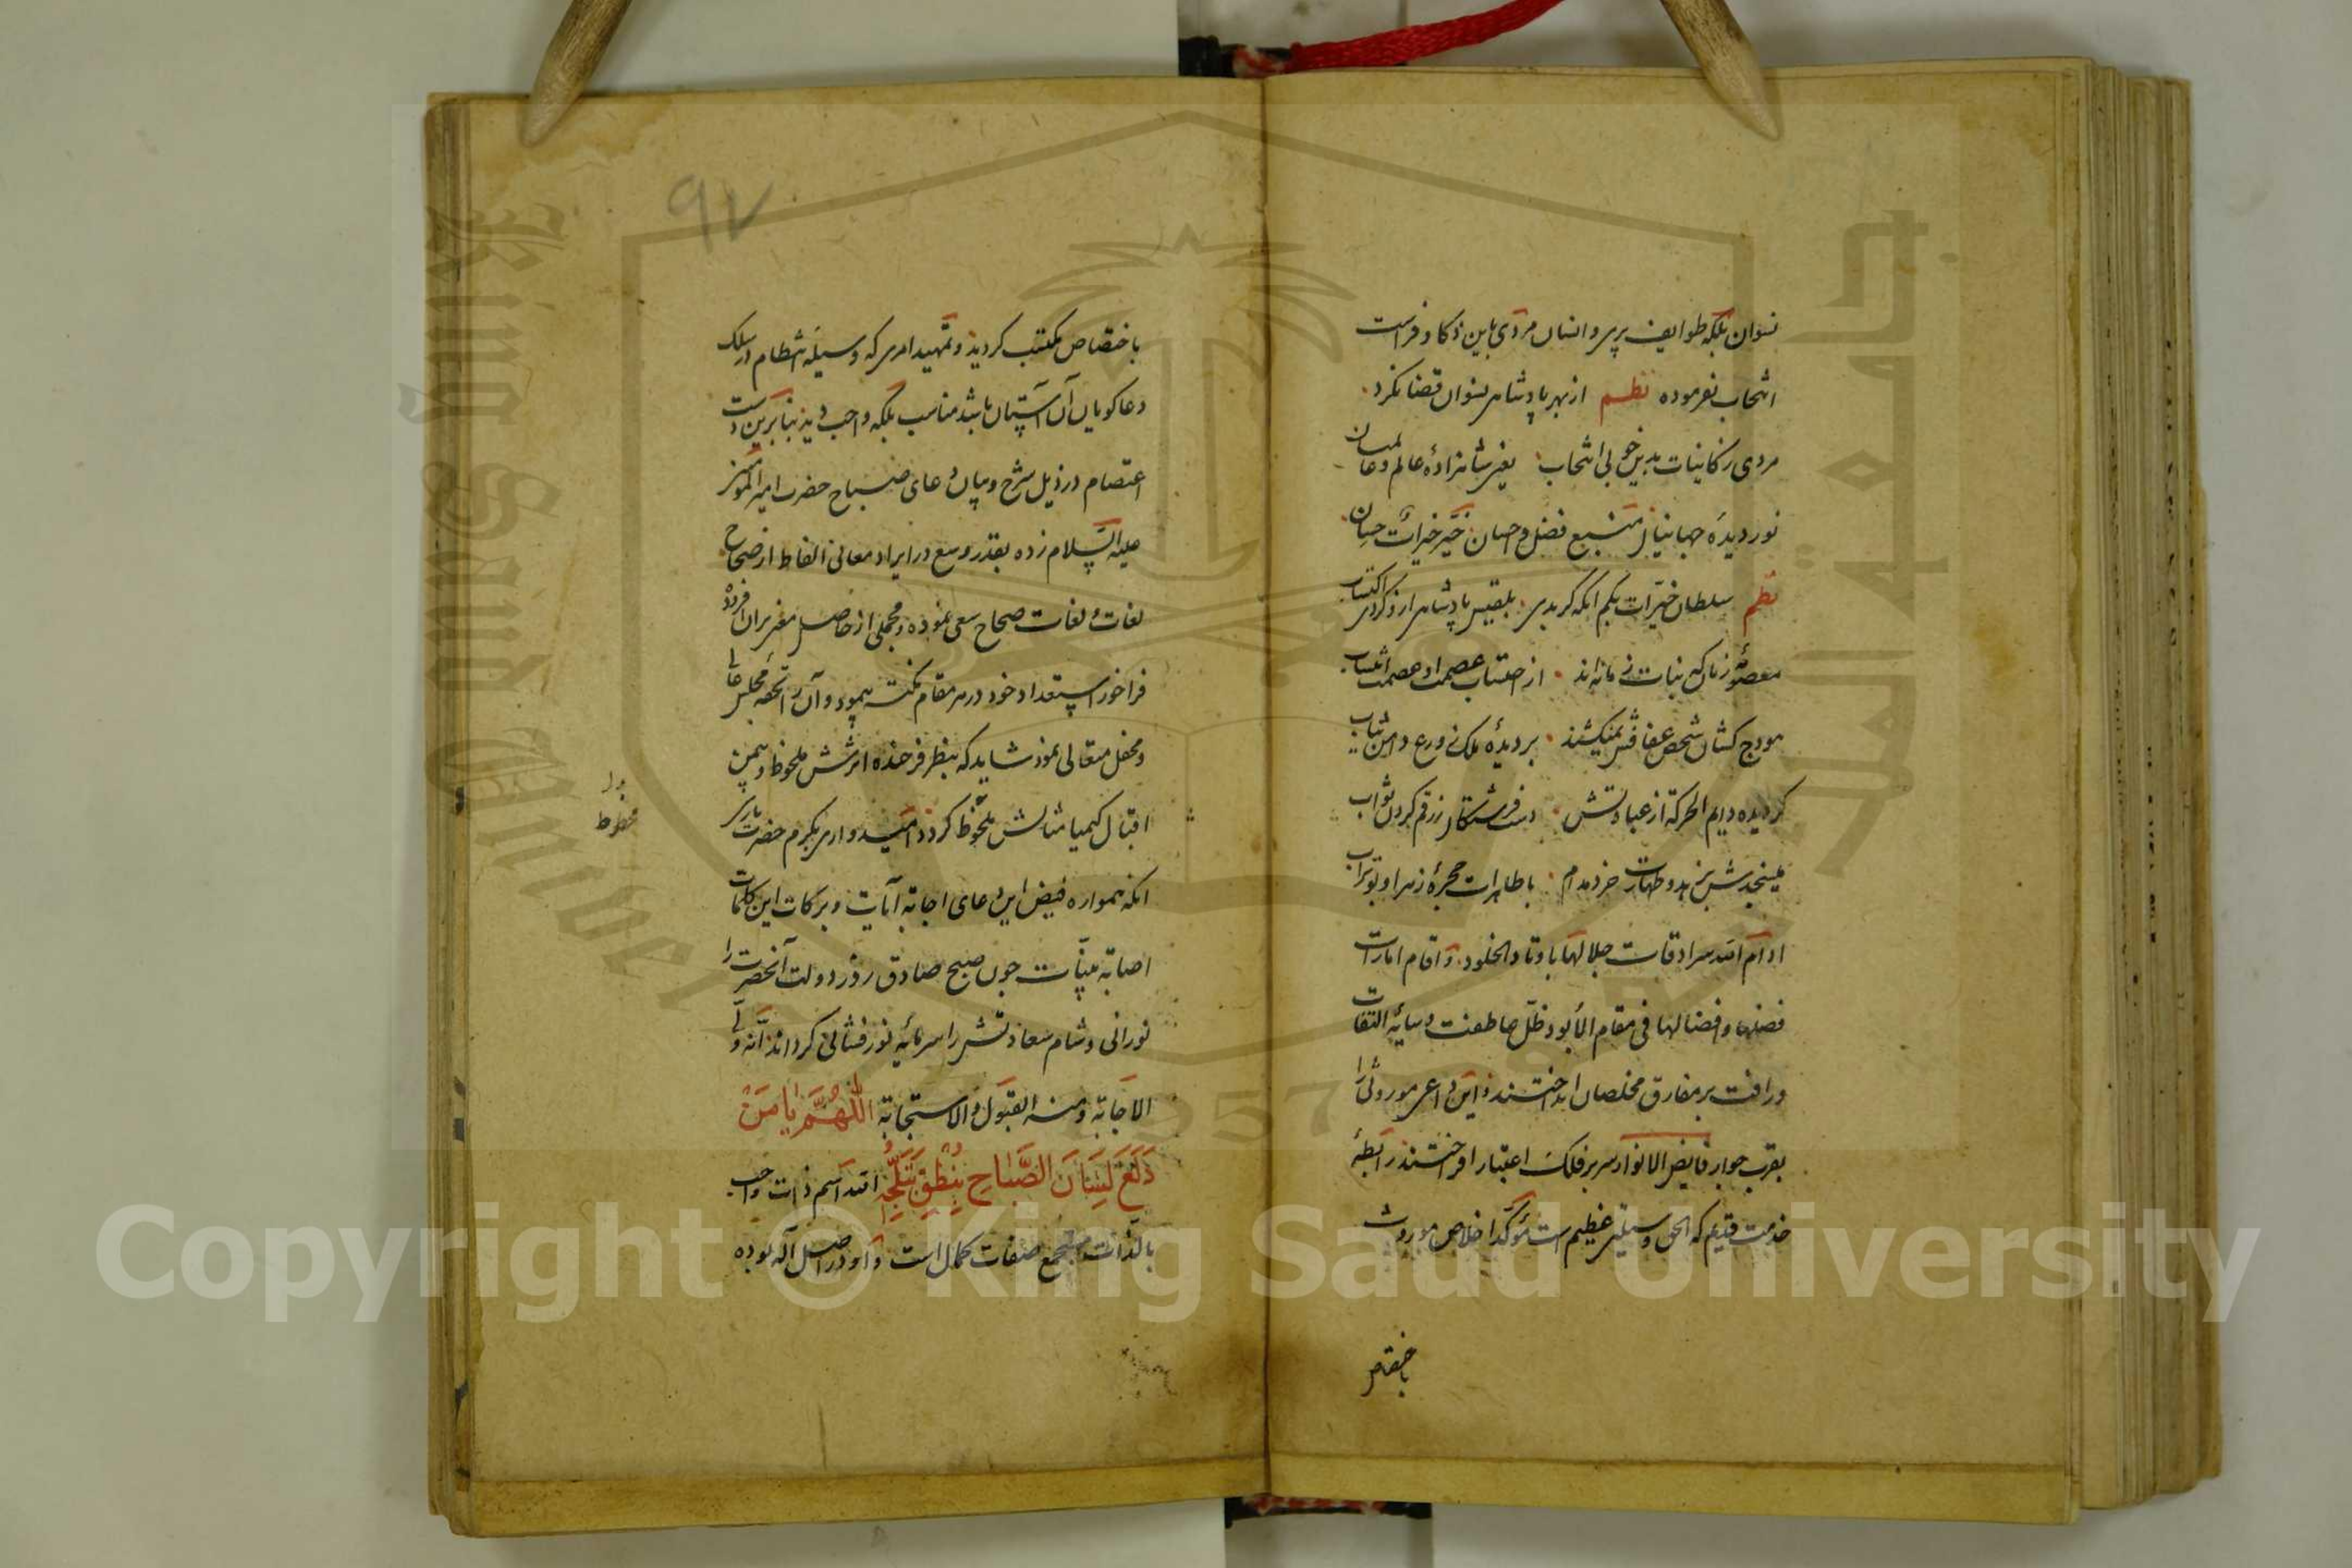 نسوان بلکه طوایف پری و انسان مردی باین ذکا و فراست
انتخاب نفرموده نظم از بهر پادشاهی نسوان قضا نکرد
مردی ز کاینات بدین خوبی انتخاب یعنی شاهزاده عالم و عالمیان
نور دیده جهانیان منبع فضل و احسان خیر خیرات حسان
نظم سلطان خیرات بکم انکه کر بدی بلقیس پادشاهی ازو کردی اکتساب
معصومه زمان که بنات زمانه‌اند از احتساب عصمت او عصمت انتساب
هودج کشان شخص عفافش نمیکشند بر دیده ملک ز ورع دامن ثیاب
کردیده دایم الحرکة از عبادتش دست فرشتکان ز رقم کردن ثواب
میسنجدش بزهد و طهارت خرد مدام با طاهرات حجره زهرا و بوتراب
ادام الله سرادقات جلالها باوتاد الخلود و اقام امارات
فضلها و افضالها فی مقام الأبود ظل عاطفت و سایه التفات
و رافت بر مفارق مخلصان انداختند و این داعی موروثی را
بقرب جوار فایض الانوار سر بر فلک اعتبار افراختند رابطه
خدمت قدیم که الحق وسیلتی عظیم است مؤکد اخلاص موروث
باختصاص
۹۷
باختصاص مکتسب کردید و تمهید امری که وسیله انتظام در سلک
دعاکویان آن آستان باشد مناسب بلکه واجب دید بنابرین دست
اعتصام در ذیل شرح و بیان دعای صباح حضرت امیر المؤمنین
علیه السلام زده بقدر وسع در ایراد معانی الفاظ از صحاح
لغات و لغات صحاح سعی نموده و مجملی از حاصل مغز بران افزوده
فراخور استعداد خود در هر مقام نکته پیمود و آن را تحفه مجلس عالی
و محفل متعالی نمود شاید که بنظر فرخنده اثرش ملحوظ و بیمن
اقبال کیمیا مثالش ملحوظ کردد امیدواری بکرم حضرت باری
محظوظ
انکه همواره فیض این دعای اجابة آیات و برکات این کلمات
اصابة بینات چون صبح صادق روز دولت آنحضرت را
نورانی و شام سعادتش را سرمایه نور فشانی کرداند انه ولی
الاجابة و منه القبول والاستجابة اللهم یا من
دلع لسان الصباح بنطق تبلجه الله اسم ذات واجب
بالذات مستجمع صفات کمال است و او در اصل آله بوده
Copyright © King Saud University
King Saud University
جامعة الملك سعود
1957